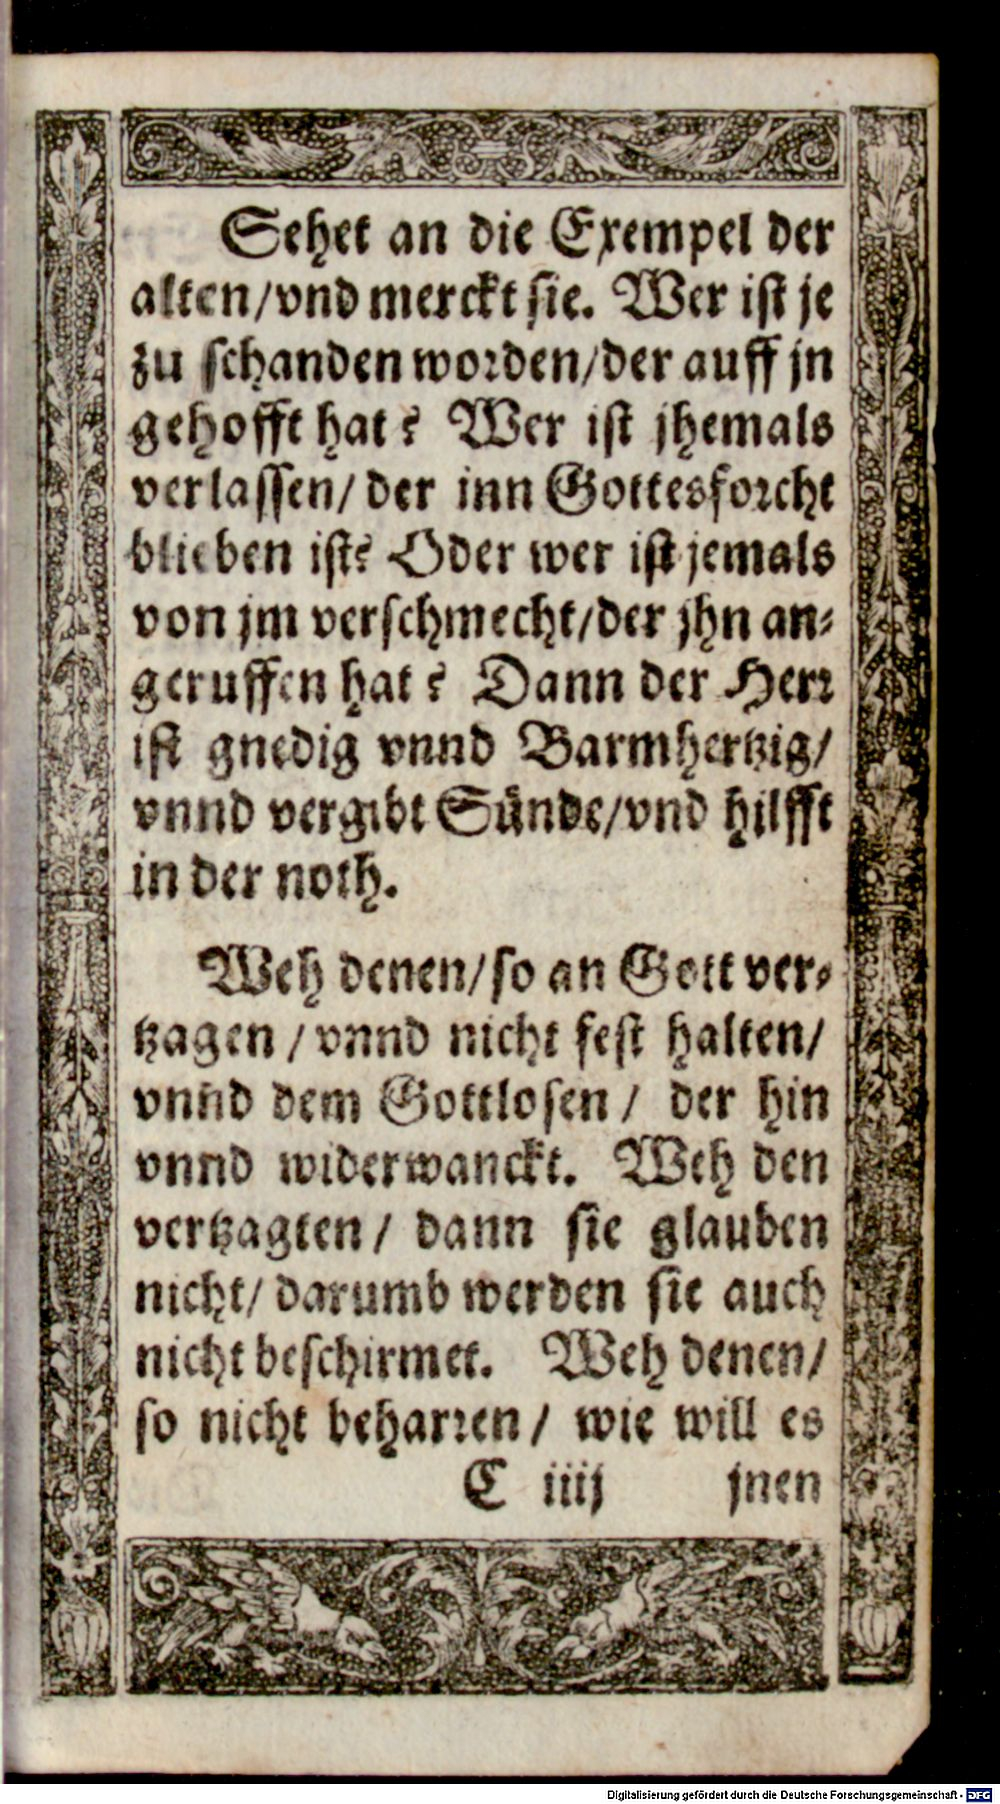 Sehet an die Exempel der
alten/vnd merckt sie. Wer ist je
zu schanden worden/der auff jn
gehofft hat? Wer ist jhemals
verlassen/ der inn Gottesforcht
blieben ist? Oder wer ist jemals
von jm verschmecht/der jhn an-
geruffen hat? Dann der Herr
ist gnedig vnnd Barmhertzig/
vnnd vergibt Sünde/vnd hilfft
in der noth.
Weh denen/so an Gott ver-
tzagen / vnnd nicht fest halten/
vnnd dem Gottlosen / der hin
vnnd widerwanckt. Weh den
vertzagten / dann sie glauben
nicht/ darumb werden sie auch
nicht beschirmet. Weh denen/
so nicht beharren / wie will es
C iiij jnen
Digitalisierung gefördert durch die Deutsche Forschungsgemeinschaft - DFG